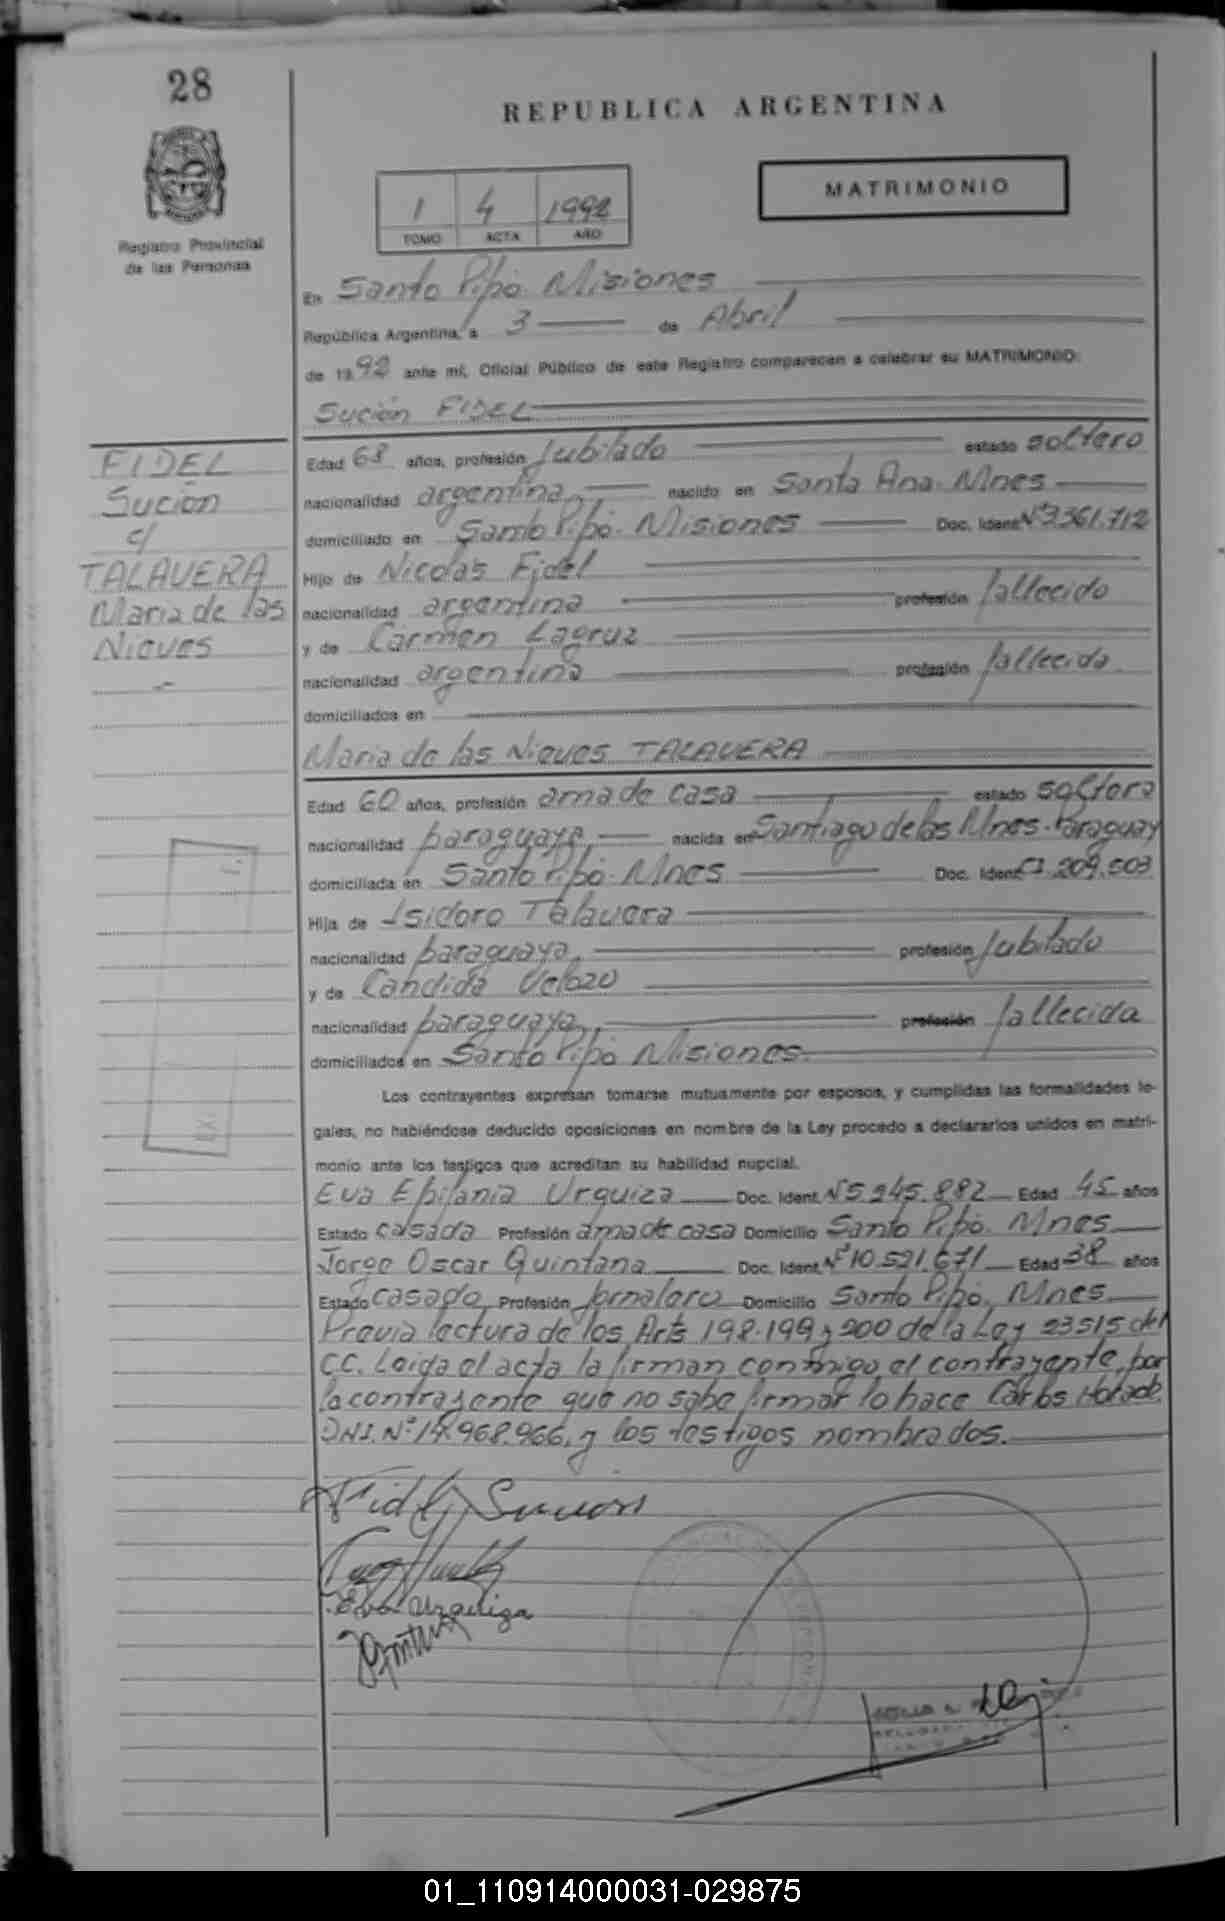 28
REPUBLICA ARGENTINA
1 4 1992
TOMO ACTA AÑO
MATRIMONIO
Registro Provincial
de las Personas
En Santo Pipó. Misiones
República Argentina, a 3 de Abril
de 1992 ante mí, Oficial Público de este Registro comparecen a celebrar su MATRIMONIO:
Sución FIDEL
FIDEL
Sución
c/
TALAVERA
Maria de las
Nieves
Edad 68 años, profesión Jubilado estado soltero
nacionalidad argentina, nacido en Santa Ana. Mnes
domiciliado en Santo Pipó. Misiones Doc. Ident. Nº 3.361.712
Hijo de Nicolás Fidel
nacionalidad argentina profesión fallecido
y de Carmen Lagruz
nacionalidad argentina profesión fallecida
domiciliados en
Maria de las Nieves TALAVERA
Edad 60 años, profesión ama de casa estado soltera
nacionalidad paraguaya, nacida en Santiago de las Mnes. Paraguay
domiciliada en Santo Pipó. Mnes Doc. Ident. 209.503
Hija de Isidoro Talavera
nacionalidad paraguaya, profesión Jubilado
y de Candida Velozo
nacionalidad paraguaya, profesión fallecida
domiciliados en Santo Pipó Misiones.
Los contrayentes expresan tomarse mutuamente por esposos, y cumplidas las formalidades le-
gales, no habiéndose deducido oposiciones en nombre de la Ley procedo a declararlos unidos en matri-
monio ante los testigos que acreditan su habilidad nupcial.
Eva Epifania Urquiza Doc. Ident. Nº 5.945.882 Edad 45 años
Estado casada Profesión ama de casa Domicilio Santo Pipó. Mnes
Jorge Oscar Quintana Doc. Ident. Nº 10.521.671 Edad 38 años
Estado casado, Profesión Jornalero Domicilio Santo Pipó. Mnes
Previa lectura de los Arts 198.199 y 200 de la Ley 23515 del
CC. Leida el acta la firman conmigo, el contrayente, por
la contrayente que no sabe firmar lo hace Carlos
DNI. Nº 14.968.966, y los testigos nombrados.
Fidel Sucion
Eva Urquiza
01_110914000031-029875